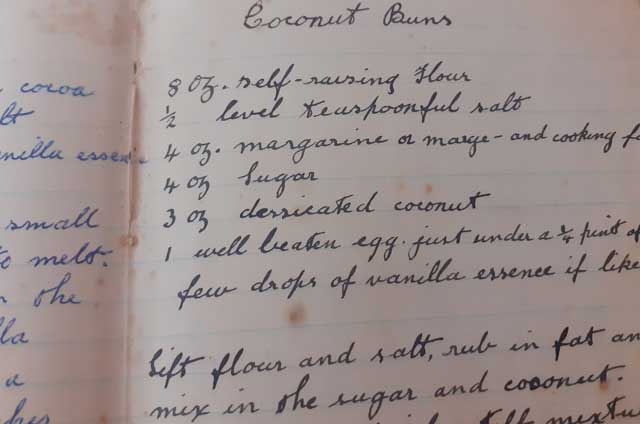 Coconut Buns
8 oz. self-raising Flour
½ level teaspoonful salt
4 oz. margarine or marge- and cooking
4 oz Sugar
3 oz dessicated coconut
1 well beaten egg. just under a ¼ pint of
few drops of vanilla essence if like
Sift flour and salt, rub in fat an
mix in the sugar and coconut.
cocoa
essen
small
to melt.
the
a